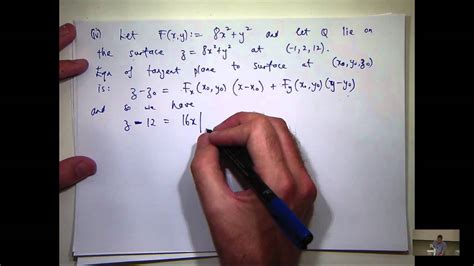 (iv) Let F(x,y) := 8x² + y² and let Q lie on
the surface z = 8x² + y² at (-1, 2, 12).
Eqn of tangent plane to surface at (x₀, y₀, z₀)
is: z - z₀ = Fₓ(x₀, y₀) (x - x₀) + F_y(x₀, y₀) (y - y₀)
and so we have
z - 12 = 16x|